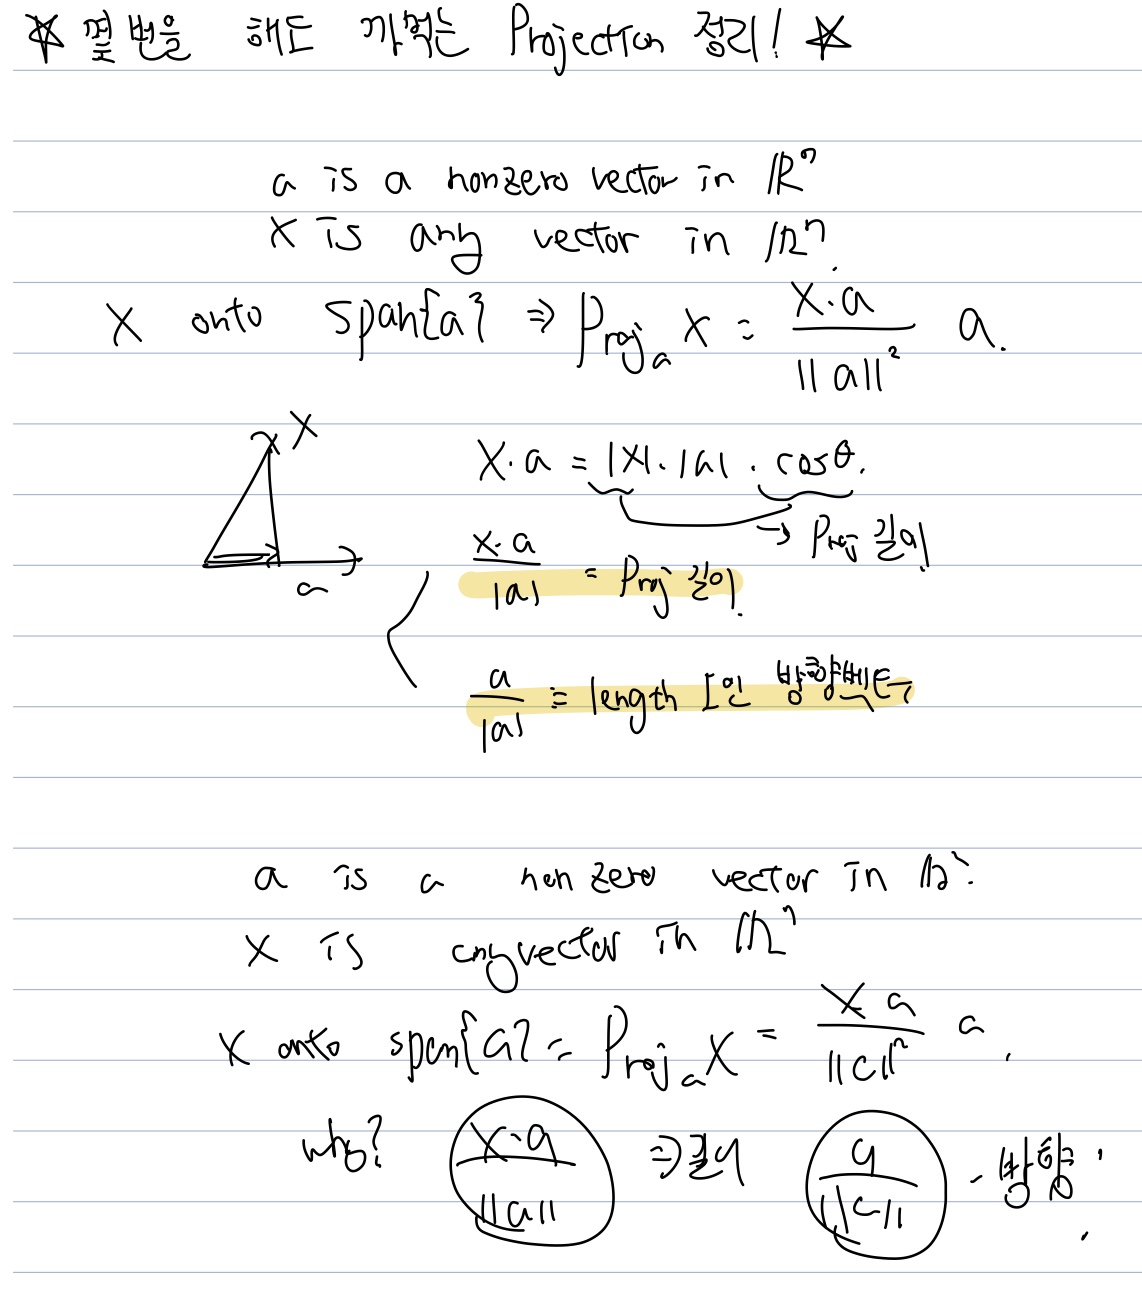 ☆ 몇 번을 해도 까먹는 Projection 정리! ☆
a is a nonzero vector in ℝⁿ
X is any vector in ℝⁿ.
X onto span{a} ⇒ Proj_a X = X·a / ||a||² a.
X
a
X·a = |X|·|a|·cosθ.
→ Proj 길이
X·a / |a| = Proj 길이.
a / |a| = length 1인 방향벡터
a is a non zero vector in ℝⁿ.
X is any vector in ℝⁿ
X onto span{a} = Proj_a X = X a / ||a||² a.
why? X·a / ||a|| ⇒ 길이 a / ||a|| - 방향.